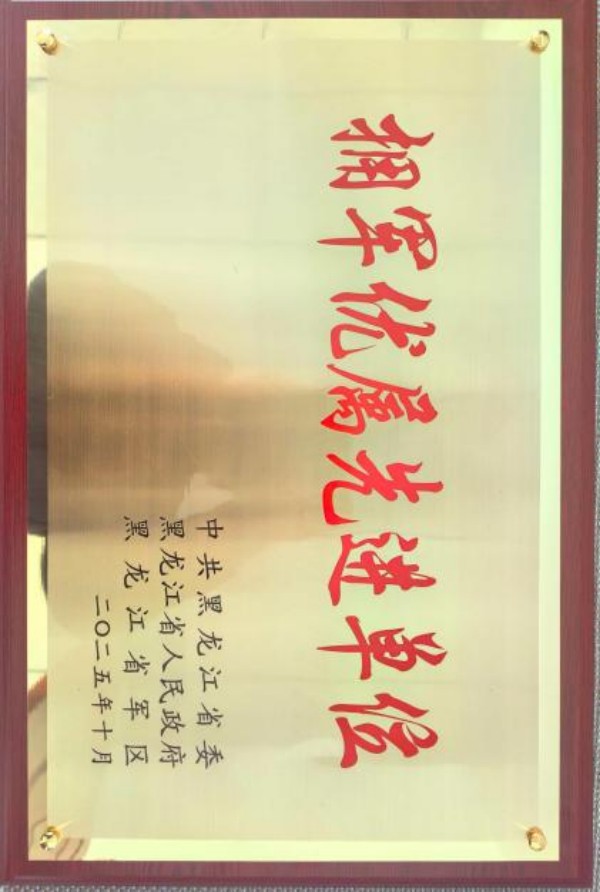 拥军优属先进单位
中共黑龙江省委
黑龙江省人民政府
黑龙江省军区
二〇二五年十月